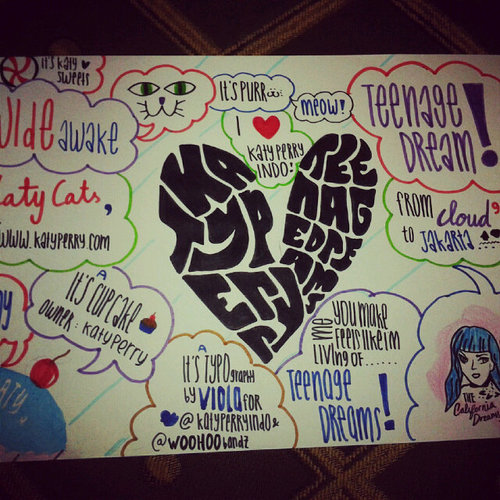 it's KATY
SWEETS
WIDE awake
Katy Cats,
www.katyperry.com
it's PURR
meow!
I
KATY PERRY
INDO!
TEENAGE
DREAM!
FROM cloud 9
to JAKARTA
KATY PERRY
TEENAGE DREAMS
A
it's CUPCAKE
OWNER: KATYPERRY
A
it's TYPOgraphy
by VIOLA FOR
@KATYPERRYINDO &
@WOOHOObandz
YOU MAKE
me Feels like I'm
LIVING OF......
TEENAGE
DREAMS!
THE
California
Dreams
ATY